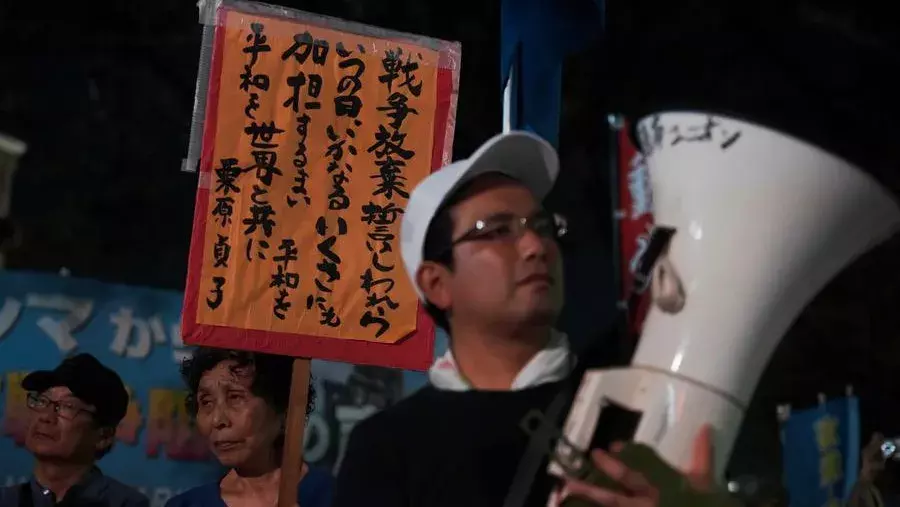 戦争放棄誓いしわれら
いつの日、いかなるいくさにも
加担するまい 平和を
平和を世界と共に
栗原貞子
ユニオン
シマから